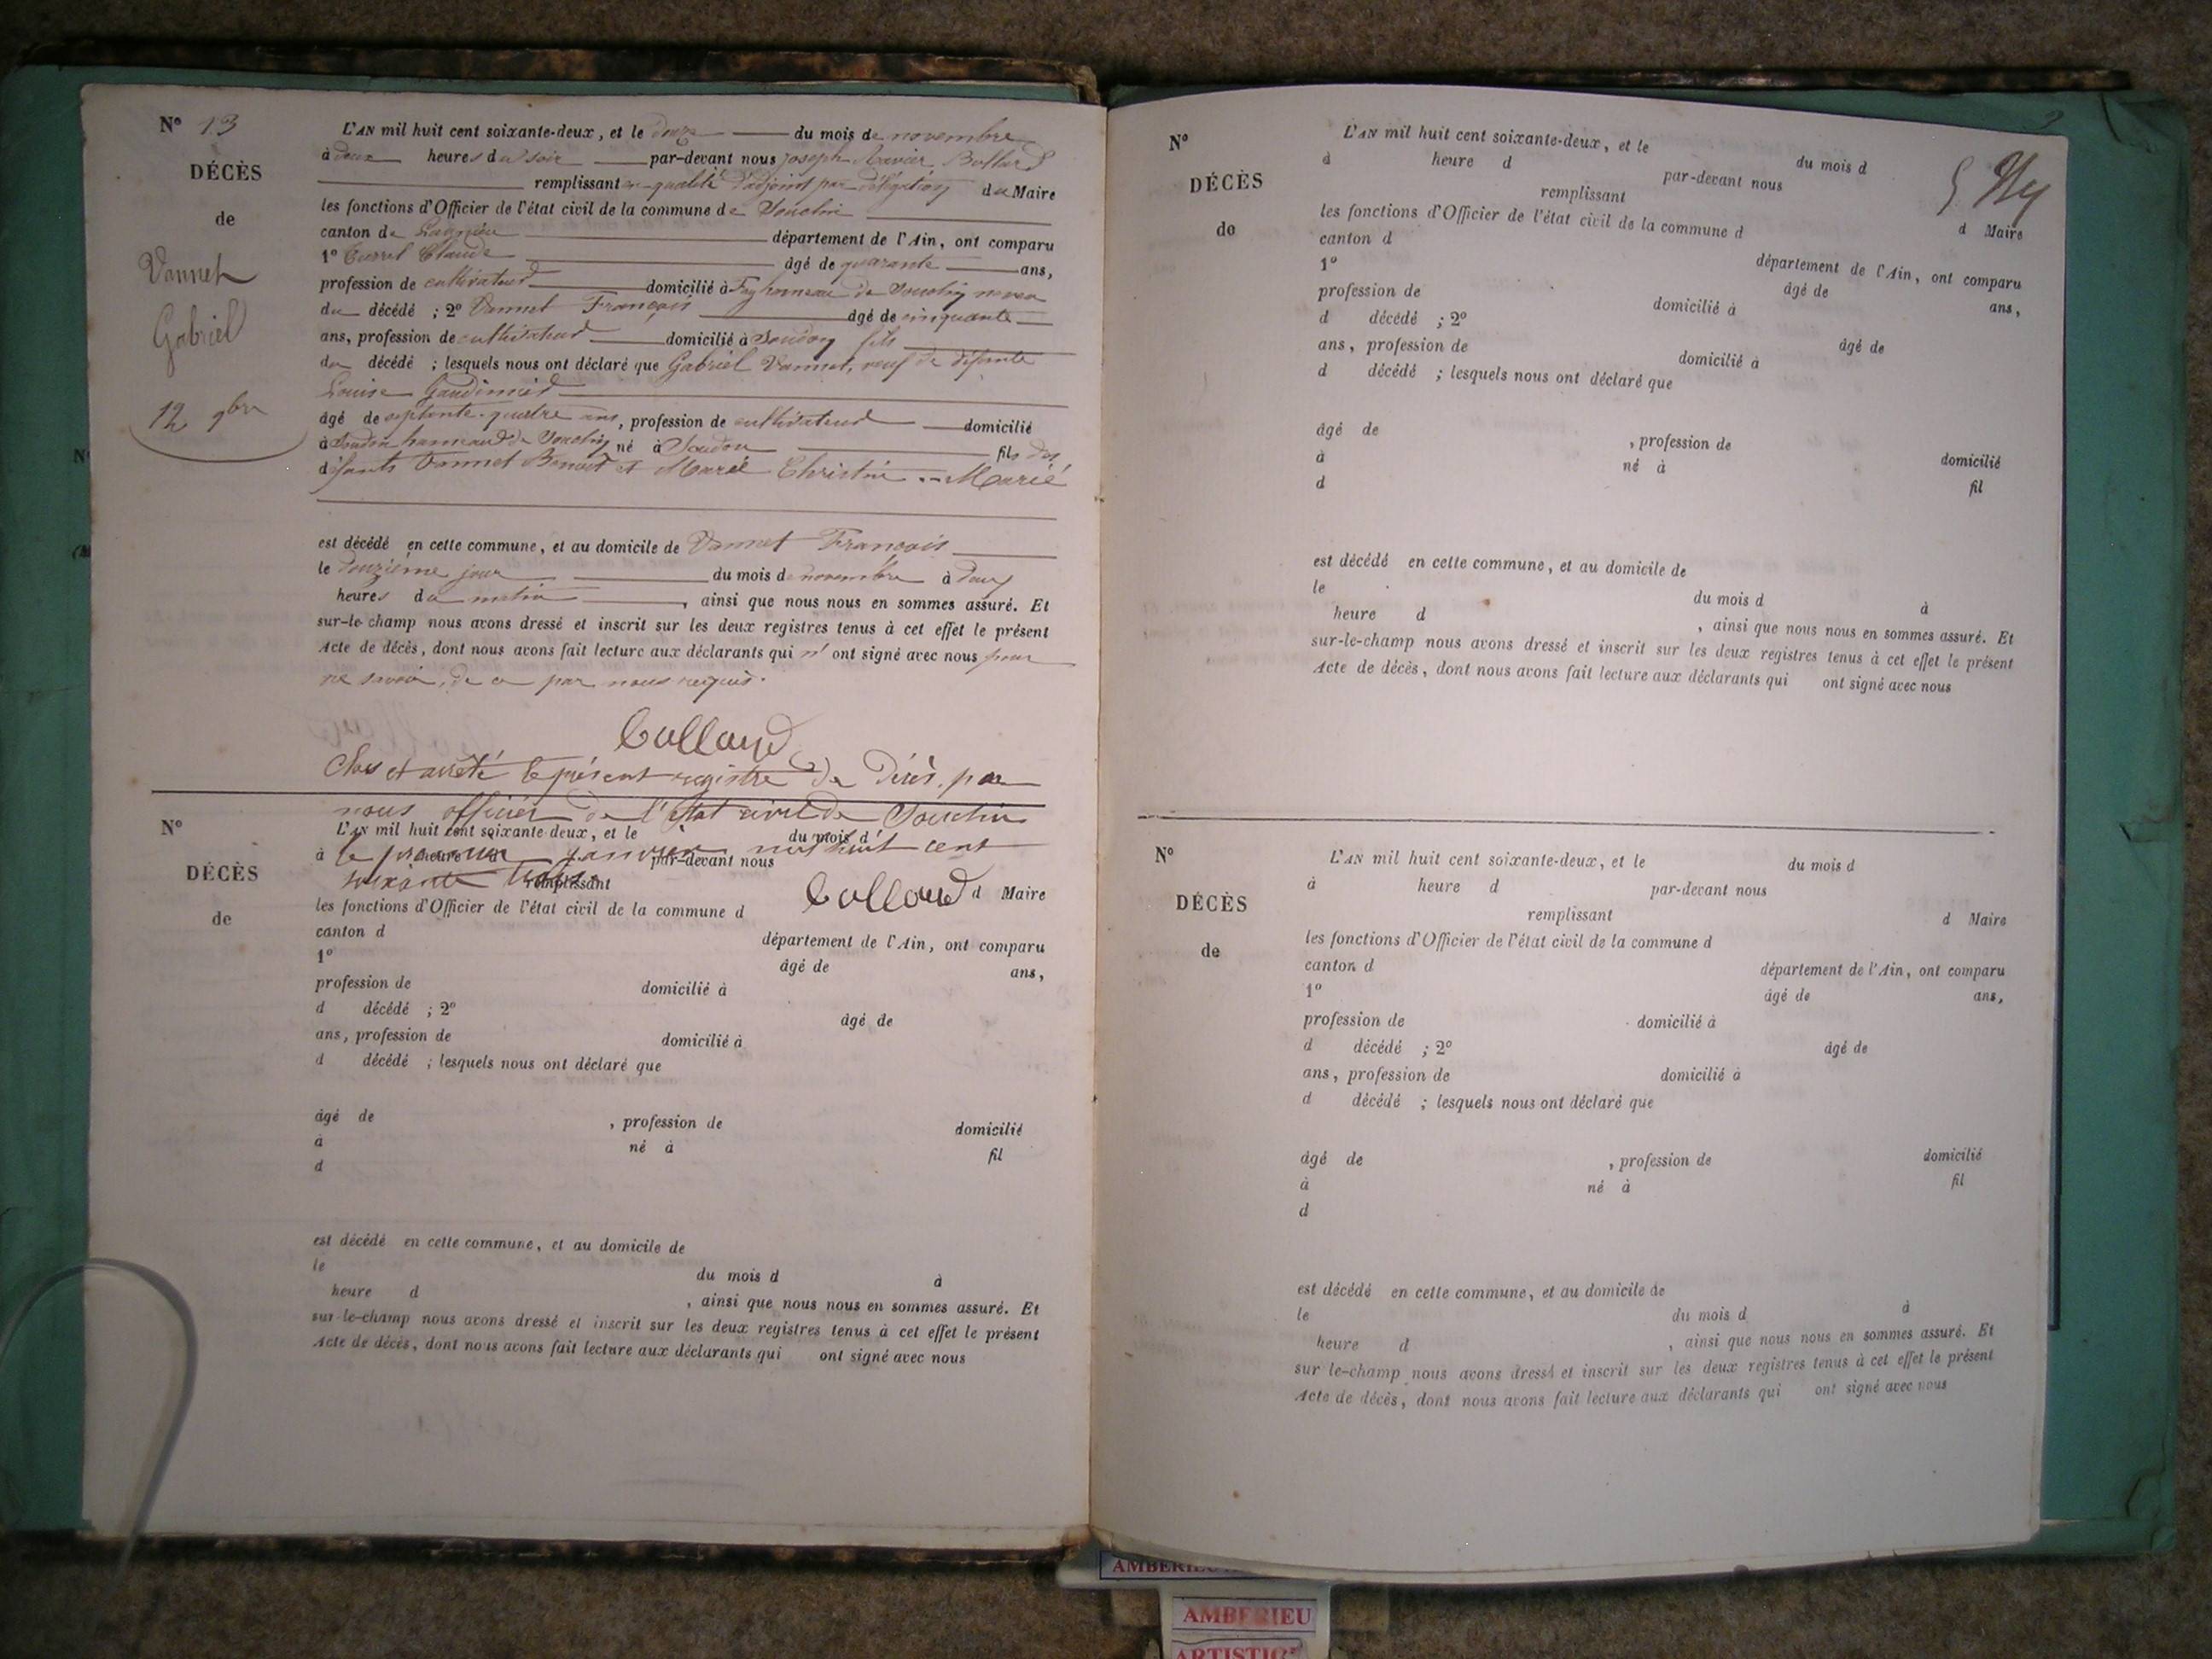 N° 13
DÉCÈS
de
Vannet
Gabriel
12 9bre
L'AN mil huit cent soixante-deux, et le douze du mois de novembre
à deux heures du soir par-devant nous Joseph Xavier Bollard
remplissant en qualité d'adjoint par délégation du Maire
les fonctions d'Officier de l'état civil de la commune de Souclin
canton de Lagnieu département de l'Ain, ont comparu
1° Claude âgé de quarante ans,
profession de cultivateur domicilié à hameau de Souclin neveu
du décédé ; 2° Vannet François âgé de cinquante
ans, profession de cultivateur domicilié à Soudon fils
du décédé ; lesquels nous ont déclaré que Gabriel Vannet, veuf de défunte
Louise
âgé de septante-quatre ans, profession de cultivateur domicilié
à Soudon hameau de Souclin né à Soudon fils des
défunts Vannet Benoit et Marie Christine Marié
est décédé en cette commune, et au domicile de Vannet François
le douzième jour du mois de novembre à deux
heures du matin, ainsi que nous nous en sommes assuré. Et
sur-le-champ nous avons dressé et inscrit sur les deux registres tenus à cet effet le présent
Acte de décès, dont nous avons fait lecture aux déclarants qui n'ont signé avec nous pour
ne savoir, de ce par nous requis.
Bollard
Clos et arrêté le présent registre de Décès par
nous officier de l'état civil de Souclin
le premier janvier mil huit cent
soixante trois
Bollard
N°
DÉCÈS
de
L'AN mil huit cent soixante-deux, et le du mois d
à heure d par-devant nous
remplissant d Maire
les fonctions d'Officier de l'état civil de la commune d
canton d département de l'Ain, ont comparu
1° âgé de ans,
profession de domicilié à
d décédé ; 2° âgé de
ans, profession de domicilié à
d décédé ; lesquels nous ont déclaré que
âgé de , profession de domicilié
à né à fil
d
est décédé en cette commune, et au domicile de
le du mois d à
heure d , ainsi que nous nous en sommes assuré. Et
sur-le-champ nous avons dressé et inscrit sur les deux registres tenus à cet effet le présent
Acte de décès, dont nous avons fait lecture aux déclarants qui ont signé avec nous
N°
DÉCÈS
de
L'AN mil huit cent soixante-deux, et le du mois d
à heure d par-devant nous
remplissant d Maire
les fonctions d'Officier de l'état civil de la commune d
canton d département de l'Ain, ont comparu
1° âgé de ans,
profession de domicilié à
d décédé ; 2° âgé de
ans, profession de domicilié à
d décédé ; lesquels nous ont déclaré que
âgé de , profession de domicilié
à né à fil
d
est décédé en cette commune, et au domicile de
le du mois d à
heure d , ainsi que nous nous en sommes assuré. Et
sur-le-champ nous avons dressé et inscrit sur les deux registres tenus à cet effet le présent
Acte de décès, dont nous avons fait lecture aux déclarants qui ont signé avec nous
N°
DÉCÈS
de
L'AN mil huit cent soixante-deux, et le du mois d
à heure d par-devant nous
remplissant d Maire
les fonctions d'Officier de l'état civil de la commune d
canton d département de l'Ain, ont comparu
1° âgé de ans,
profession de domicilié à
d décédé ; 2° âgé de
ans, profession de domicilié à
d décédé ; lesquels nous ont déclaré que
âgé de , profession de domicilié
à né à fil
d
est décédé en cette commune, et au domicile de
le du mois d à
heure d , ainsi que nous nous en sommes assuré. Et
sur le-champ nous avons dressé et inscrit sur les deux registres tenus à cet effet le présent
Acte de décès, dont nous avons fait lecture aux déclarants qui ont signé avec nous
AMBERIEU
AMBERIEU
ARTISTIC